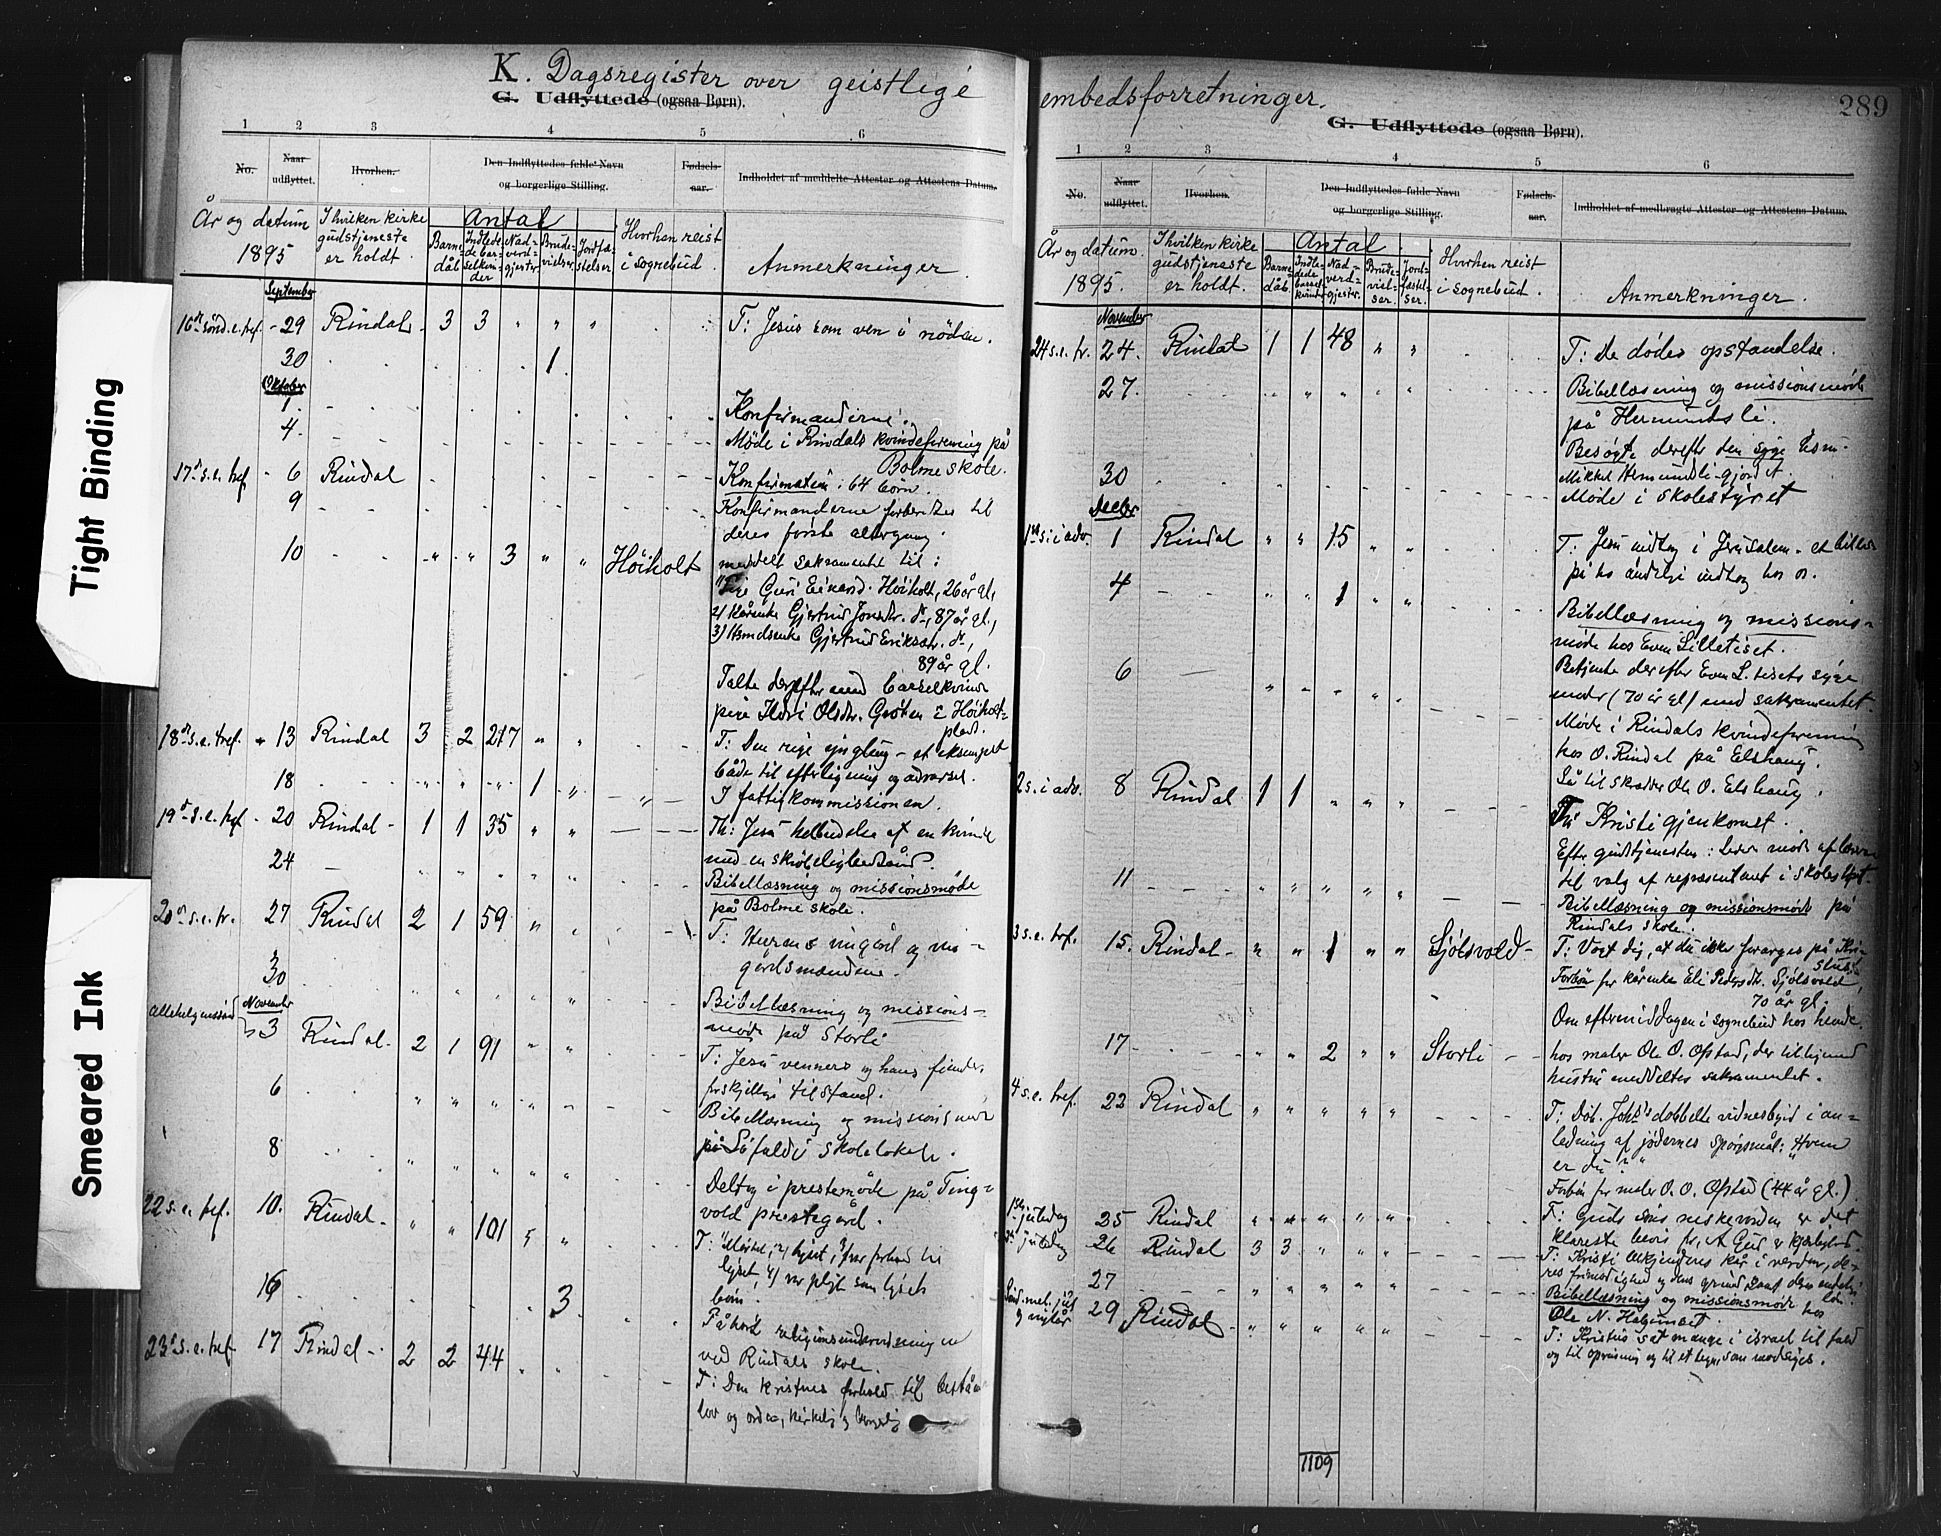 K. Dagsregister over geistlige
G. Udflyttede (ogsaa Børn).
1 2 3 4 5 6
No. Naar udflyttet. Hvorhen. Den Indflyttedes fulde Navn og borgerlige Stilling. Fødsels-aar. Indholdet af meddelte Attester og Attestens Datum.
År og datum 1895 I hvilken kirke gudstjeneste er holdt. Antal Barnedåb Indledede barselkvinder Nadverdgjester Brudevielser Jordfæstelser Hvorhen reist i sognebud. Anmerkninger.
September
16de sönd. e. tref. - 29 Rindal 3 3 " " " T: Jesus som ven i nöden.
30 1
Oktober
1. Konfirmanderne.
4. Møde i Rindals kvindeforening på
Bolme skole.
17de s.e. tref - 6 Rindal Konfirmation: 64 börn.
9 Konfirmanderne forberedes til
deres første altergang.
10 " " 3 " " Höiholt meddelt sakramentet til:
1) Pige Guri Einarsd. Höiholt, 26 år gl.,
2) Kårenke Gjertrud Jonsdr. ds, 87 år gl.,
3) Gjertrud Eriksdr. ds,
89 år gl.
Talte derefter med barselkvinde
pige Olsdr. Höiholt-
plads.
18de s.e. tref. - 13 Rindal 3 2 217 " " T: Den rige yngling - et eksempel
både til efterligning og advarsel.
18 " " " 1 " I fattigkommissionen.
19de s.e. tref - 20 Rindal 1 1 35 " " Th: Jesu helbredelse af en kvinde
med en skröbelighedsånd.
24 Bibellæsning og missionsmøde
på Bolme skole.
20de s.e. tr. 27 Rindal 2 1 59 " " T: Herrens vingård og vin-
gårdsmændene.
30 Bibellæsning og missions-
møde på Storli
November
Allehelgenssönd 3 Rindal 2 1 91 " " T: Jesu venners og hans fienders
forskjellige tilstand.
6 Bibellæsning og missionsmøde
på skolelokale.
8 Deltog i prestemøde på Ting-
vold prestegård.
22 s.e. tref. 10. Rindal " " 101 T: 1) Mörket, 2) lyset, 3) vor forhold til
lyset, 4) vor pligt som lysets
børn.
16 3 Påhört religionsundervisningen
ved Rindals skole.
23de s.e. tref 17 Rindal 2 2 44 T: Den kristnes forhold til bestående
lov og orden, kirkelig og borgerlig
embedsforretninger.
289
G. Udflyttede (ogsaa Børn).
1 2 3 4 5 6
No. Naar udflyttet. Hvorhen. Den Indflyttedes fulde Navn og borgerlige Stilling. Fødsels-aar. Indholdet af medbragte Attester og Attestens Datum.
År og datum. 1895. I hvilken kirke gudstjeneste er holdt. Antal Barnedåb Indledede barselkvinder Nadverdgjester Brudevielser. Jordfæstelser. Hvorhen reist i sognebud. Anmerkninger.
November
24 s.e. tr. 24. Rindal 1 1 48 " " T: De dødes opstandelse.
27. Bibellæsning og missionsmøde
på Hermundsli.
Besøgte derefter den syge
Mikkel Hermundsli-gjerdet.
30 Møde i skolestyret
Decbr
1ste s. i adv. 1 Rindal " " 15 " " T: Jesu indtog i Jerusalem - et billede
på hs åndelige indtog hos os.
4 " " 1 " " Bibellæsning og missions-
møde hos Even Lilletiset.
Betjente derefter Even L. tisets syge
moder (70 år gl) med sakramentet.
6 Møde i Rindals kvindeforening
hos O. Rindal på Elshaug.
Så til skredder Ole O. Elshaug.
2 s. i adv. 8 Rindal 1 1 " " " T: Kristi gjenkomst.
Efter gudstjenesten: Leder møde af
til valg af repræsentant i skolestyret.
11 Bibellæsning og missionsmøde på
Rindals skole.
3 s. e. tref. 15. Rindal " " 1 " " Sjölsvold T: Vogt dig, at du ikke forarges på Kri-
stus!
Forbön for kårenke Eli Pedersdr. Sjölsvold,
70 år gl.
Om eftermiddagen i sognebud hos hende.
17 " " 2 " " Storli hos maler Ole O. Ofstad, der tillige med
hustru meddeltes sakramentet.
4 s.e. tref. 22 Rindal T: Döb. Johs's dobbelte vidnesbyrd i an-
ledning af jødernes spørgsmål: "Hvem
er du?"
Forbön for maler O. O. Ofstad (44 år gl.)
1ste juledag 25 Rindal T: Guds söns menneskevorden er det
klareste bevis for, at Gud er kjærlighed.
2 juledag 26 Rindal 3 3 " " " T: Kristi bekjenderes kår i verden, de-
res frimodighed og dens grund samt den endelige lön.
27 Bibellæsning og missionsmøde hos
Ole N. Helgemoet.
Sönd. mel. jul og nytår 29 Rindal T: Kristus sat mange i israel til fald
og til opreisning og til et tegn, som modsiges.
1109
Tight Binding
Smeared Ink